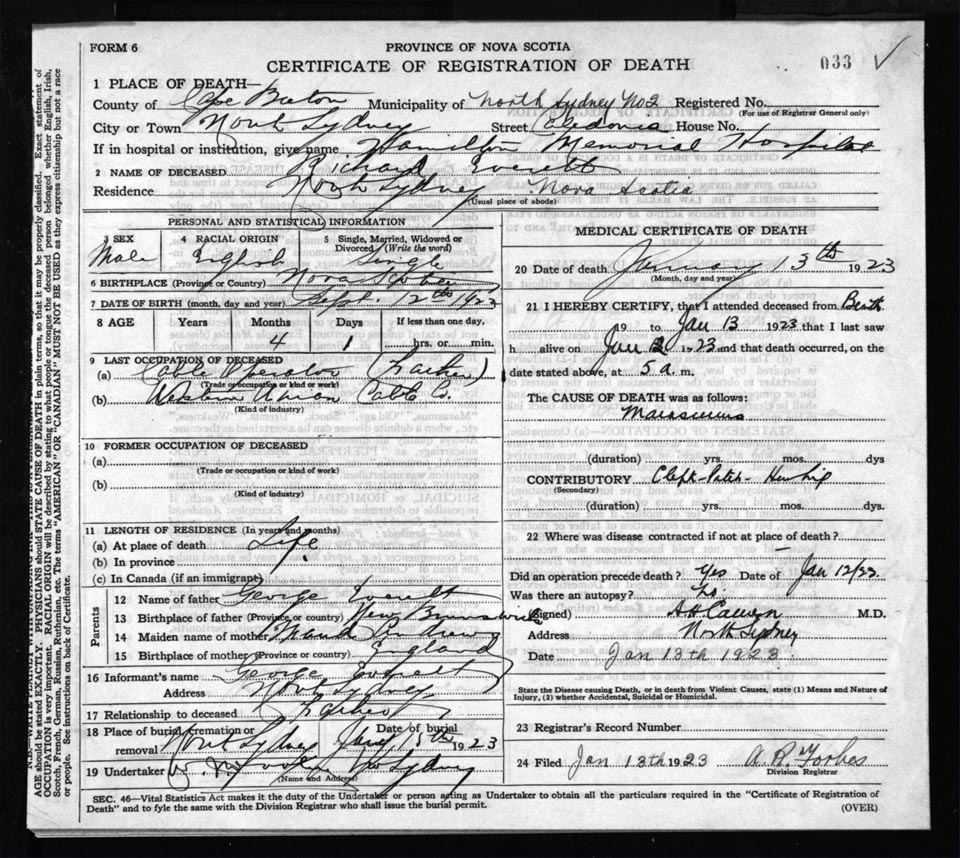 FORM 6
PROVINCE OF NOVA SCOTIA
CERTIFICATE OF REGISTRATION OF DEATH
033 ✓
1 PLACE OF DEATH—
County of Cape Breton Municipality of North Sydney No 2 Registered No.
(For use of Registrar General only)
City or Town North Sydney Street Caledonia House No.
If in hospital or institution, give name Hamilton Memorial Hospital
2 NAME OF DECEASED Richard Everett
Residence North Sydney Nova Scotia
(Usual place of abode)
PERSONAL AND STATISTICAL INFORMATION
3 SEX 4 RACIAL ORIGIN 5 Single, Married, Widowed or Divorced (Write the word)
Male English Single
6 BIRTHPLACE (Province or Country) Nova Scotia
7 DATE OF BIRTH (month, day and year) Sept 12th 1923
8 AGE Years Months Days If less than one day,
4 1 hrs. or min.
9 LAST OCCUPATION OF DECEASED
(a) Cable Operator (Father)
(Trade or occupation or kind or work)
(b) Western Union Cable Co.
(Kind of industry)
10 FORMER OCCUPATION OF DECEASED
(a)
(Trade or occupation or kind of work)
(b)
(Kind of industry)
11 LENGTH OF RESIDENCE (In years and months)
(a) At place of death Life
(b) In province
(c) In Canada (if an immigrant)
Parents
12 Name of father George Everett
13 Birthplace of father (Province or country) New Brunswick
14 Maiden name of mother Maud Andrews
15 Birthplace of mother (Province or country) England
16 Informant's name George Everett
Address North Sydney
17 Relationship to deceased Father
18 Place of burial, cremation or removal North Sydney Date of burial Jany 15th 1923
19 Undertaker No Sydney
(Name and Address)
MEDICAL CERTIFICATE OF DEATH
20 Date of death January 13th 1923
(Month, day and year)
21 I HEREBY CERTIFY, that I attended deceased from Birth
19 to Jan 13 1923 that I last saw
h alive on Jan 13 1923 and that death occurred, on the
date stated above, at 5 a. m.
The CAUSE OF DEATH was as follows:
Marasmus
(duration) yrs. mos. dys
CONTRIBUTORY Cleft-Palate-Harelip
(Secondary)
(duration) yrs. mos. dys.
22 Where was disease contracted if not at place of death?
—
Did an operation precede death? Yes Date of Jan 12/23
Was there an autopsy? No
(Signed) M.D.
Address North Sydney
Date Jan 13th 1923
State the Disease causing Death, or in death from Violent Causes, state (1) Means and Nature of Injury, (2) whether Accidental, Suicidal or Homicidal.
23 Registrar's Record Number
24 Filed Jan 13th 1923 A. R. Forbes
Division Registrar
SEC. 46—Vital Statistics Act makes it the duty of the Undertaker or person acting as Undertaker to obtain all the particulars required in the "Certificate of Registration of
Death" and to fyle the same with the Division Registrar who shall issue the burial permit.
(OVER)
AGE should be stated EXACTLY. PHYSICIANS should STATE CAUSE OF DEATH in plain terms, so that it may be properly classified. Exact statement of
OCCUPATION is very important. RACIAL ORIGIN will be described by stating to what people or tongue the deceased person belonged whether English, Irish,
Scotch, French, German, Russian, Ruthenian, etc. The terms "AMERICAN" OR "CANADIAN" MUST NOT BE USED as they express citizenship but not a race
or people. See instructions on back of Certificate.